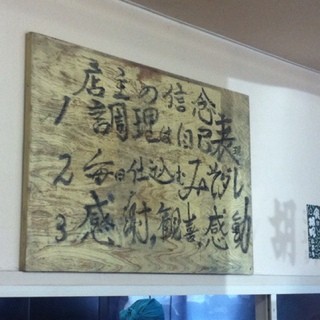 店主の信念
1 調理は自己表現
2 毎日仕込むみそダレ
3 感謝,観喜,感動
胡